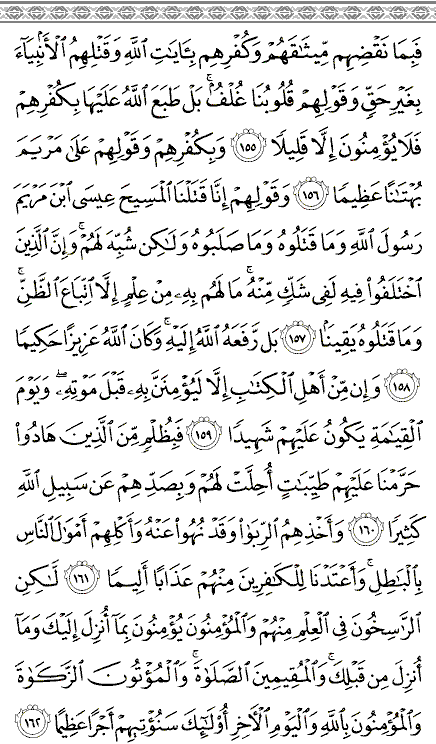 فَبِمَا نَقْضِهِم مِّيثَٰقَهُمْ وَكُفْرِهِم بِـَٔايَٰتِ ٱللَّهِ وَقَتْلِهِمُ ٱلْأَنۢبِيَآءَ
بِغَيْرِ حَقٍّ وَقَوْلِهِمْ قُلُوبُنَا غُلْفٌۢ ۚ بَلْ طَبَعَ ٱللَّهُ عَلَيْهَا بِكُفْرِهِمْ
فَلَا يُؤْمِنُونَ إِلَّا قَلِيلًا ١٥٥ وَبِكُفْرِهِمْ وَقَوْلِهِمْ عَلَىٰ مَرْيَمَ
بُهْتَٰنًا عَظِيمًا ١٥٦ وَقَوْلِهِمْ إِنَّا قَتَلْنَا ٱلْمَسِيحَ عِيسَى ٱبْنَ مَرْيَمَ
رَسُولَ ٱللَّهِ وَمَا قَتَلُوهُ وَمَا صَلَبُوهُ وَلَٰكِن شُبِّهَ لَهُمْ ۚ وَإِنَّ ٱلَّذِينَ
ٱخْتَلَفُوا۟ فِيهِ لَفِى شَكٍّ مِّنْهُ ۚ مَا لَهُم بِهِۦ مِنْ عِلْمٍ إِلَّا ٱتِّبَاعَ ٱلظَّنِّ ۚ
وَمَا قَتَلُوهُ يَقِينًۢا ١٥٧ بَل رَّفَعَهُ ٱللَّهُ إِلَيْهِ ۚ وَكَانَ ٱللَّهُ عَزِيزًا حَكِيمًا
١٥٨ وَإِن مِّنْ أَهْلِ ٱلْكِتَٰبِ إِلَّا لَيُؤْمِنَنَّ بِهِۦ قَبْلَ مَوْتِهِۦ ۖ وَيَوْمَ
ٱلْقِيَٰمَةِ يَكُونُ عَلَيْهِمْ شَهِيدًا ١٥٩ فَبِظُلْمٍ مِّنَ ٱلَّذِينَ هَادُوا۟
حَرَّمْنَا عَلَيْهِمْ طَيِّبَٰتٍ أُحِلَّتْ لَهُمْ وَبِصَدِّهِمْ عَن سَبِيلِ ٱللَّهِ
كَثِيرًا ١٦٠ وَأَخْذِهِمُ ٱلرِّبَوٰا۟ وَقَدْ نُهُوا۟ عَنْهُ وَأَكْلِهِمْ أَمْوَٰلَ ٱلنَّاسِ
بِٱلْبَٰطِلِ ۚ وَأَعْتَدْنَا لِلْكَٰفِرِينَ مِنْهُمْ عَذَابًا أَلِيمًا ١٦١ لَّٰكِنِ
ٱلرَّٰسِخُونَ فِى ٱلْعِلْمِ مِنْهُمْ وَٱلْمُؤْمِنُونَ يُؤْمِنُونَ بِمَآ أُنزِلَ إِلَيْكَ وَمَآ
أُنزِلَ مِن قَبْلِكَ ۚ وَٱلْمُقِيمِينَ ٱلصَّلَوٰةَ ۚ وَٱلْمُؤْتُونَ ٱلزَّكَوٰةَ
وَٱلْمُؤْمِنُونَ بِٱللَّهِ وَٱلْيَوْمِ ٱلْءَاخِرِ أُو۟لَٰٓئِكَ سَنُؤْتِيهِمْ أَجْرًا عَظِيمًا ١٦٢